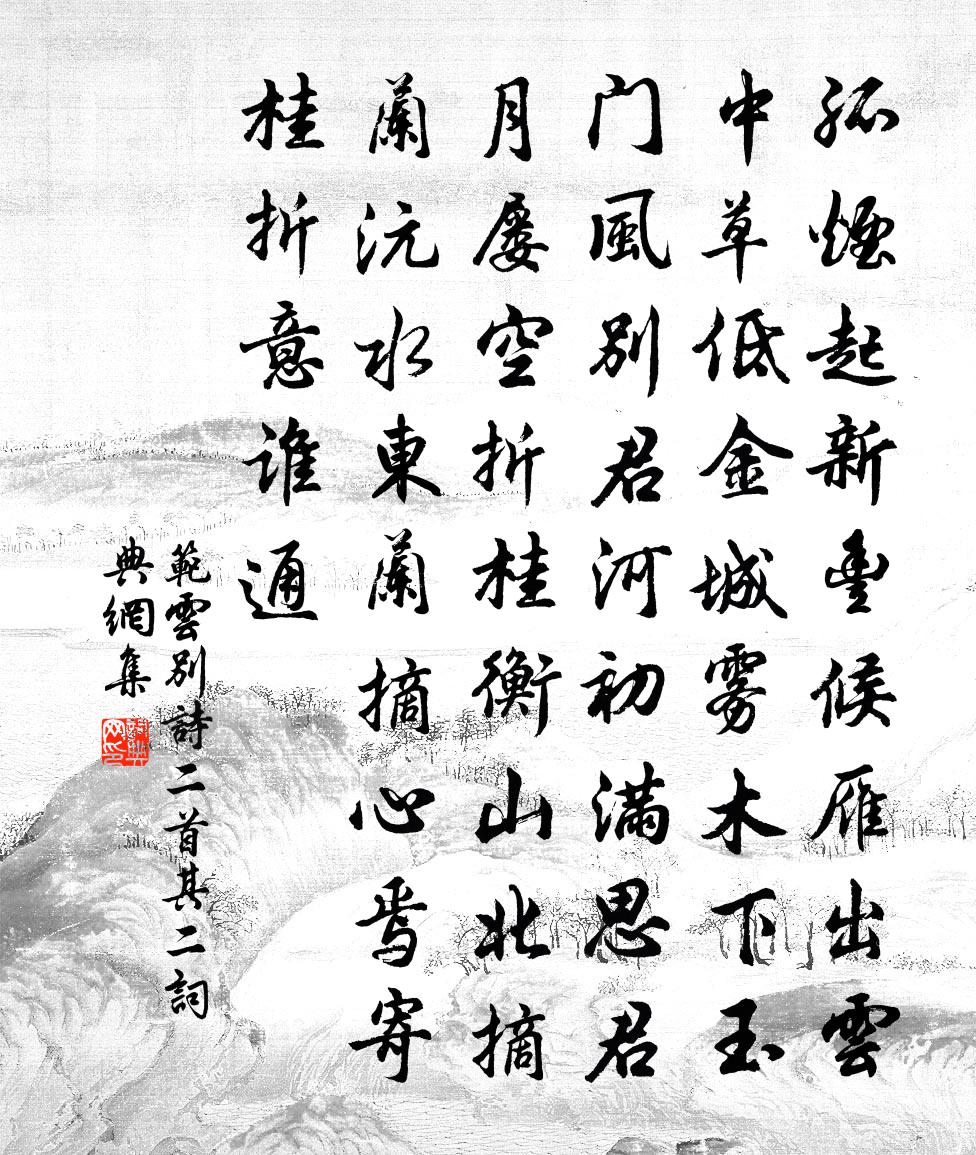 孤煙起新豐候雁出雲
中草低金城霧木下玉
门風別君河初滿思君
月屡空折桂衡山北摘
蘭沅水東蘭摘心焉寄
桂折意誰通
範雲別詩二首其二詞
典網集